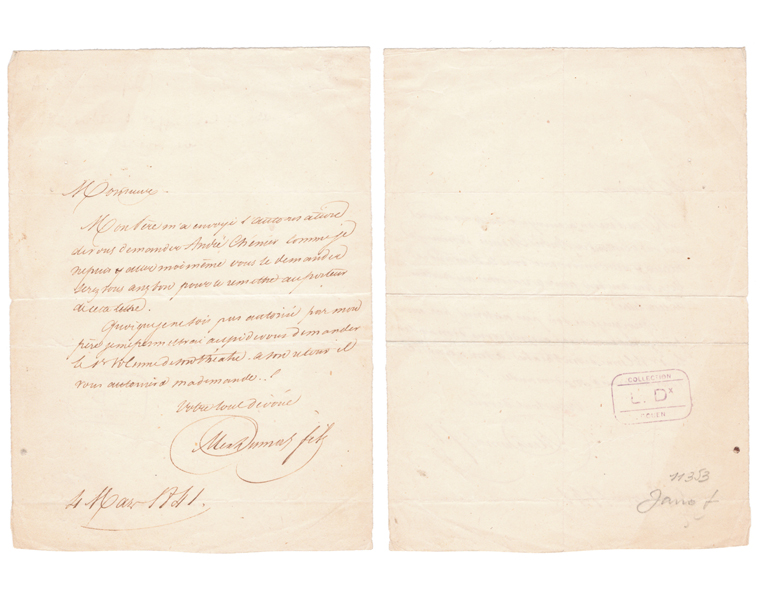 Monsieur.
Mon Père m'a envoyé l'autorisation
de vous demander André Chenier comme je
ne puis y aller moi même vous le demander
Serez vous assez bon pour le remettre au porteur
de cette lettre.
Quoique je ne sois pas autorisé par mon
père je me permettrai aussi de vous demander
le 1er Volume de son théatre. a son retour il
vous autorisera ma demande..
Votre tout dévoué
Alex Dumas fils
4 Mars 1841.
COLLECTION
L. Dx
1133